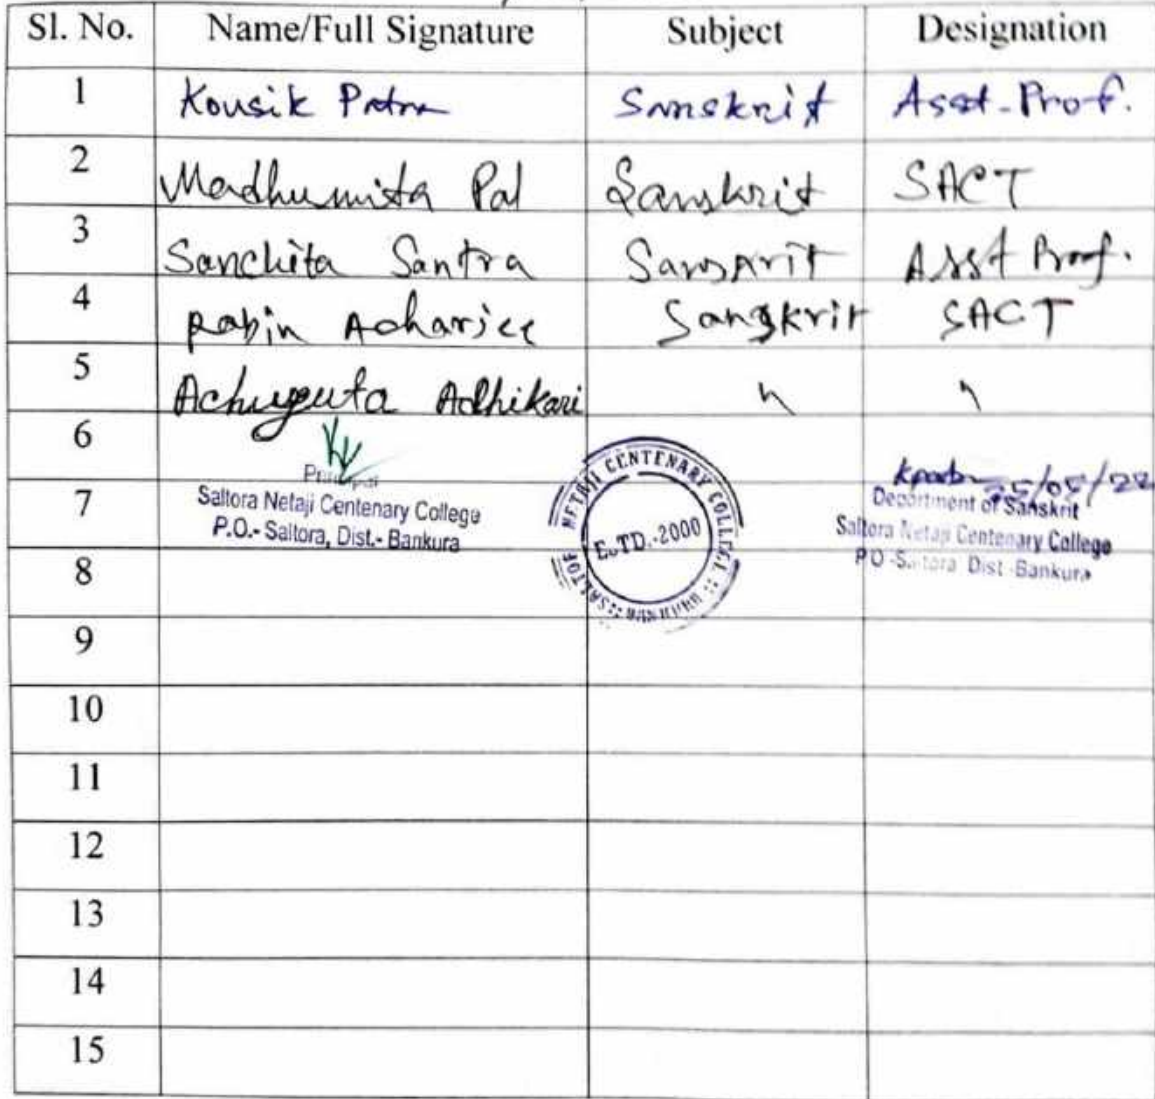 Sl. No. Name/Full Signature Subject Designation
1 Kousik Patra Sanskrit Asst. Prof.
2 Madhumita Pal Sanskrit SACT
3 Sanchita Santra Sanskrit Asst Prof.
4 Rabin Acharjee Sangskrit SACT
5 Achyuta Adhikari " "
6
Principal
Saltora Netaji Centenary College
P.O.- Saltora, Dist.- Bankura
NETAJI CENTENARY COLLEGE
ESTD.-2000
BANKURA
25/05/22
Department of Sanskrit
Saltora Netaji Centenary College
P.O.-Saltora Dist-Bankura
7
8
9
10
11
12
13
14
15